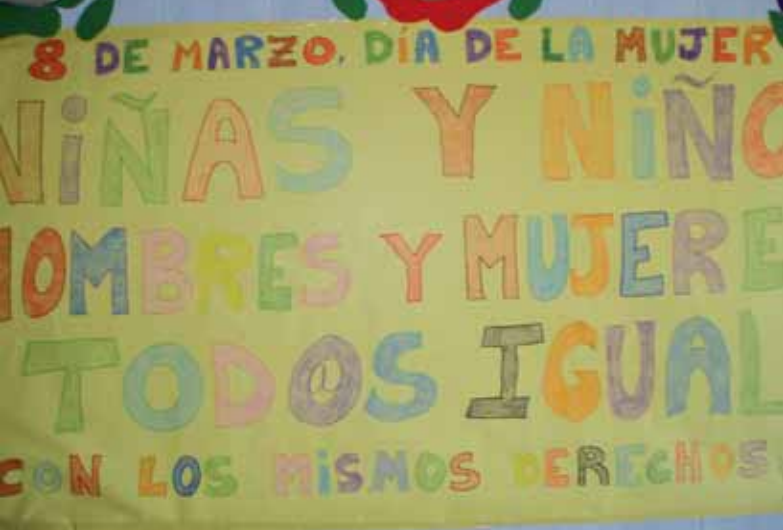 8 DE MARZO. DÍA DE LA MUJER
NiÑAS Y NiÑO
HOMBRES Y MUJERE
TOD@S IGUAL
CON LOS MiSMOS DERECHOS